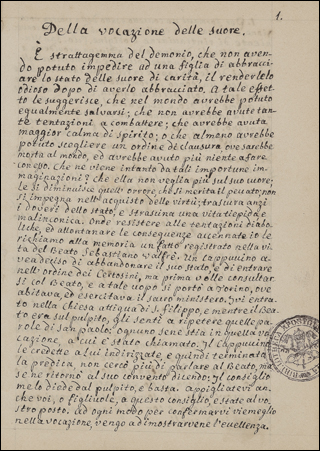 1.
Della vocazione delle suore.
È strattagemma del demonio, che non aven-
do potuto impedire ad una figlia di abbracci-
are lo stato delle suore di carità, il renderlelo
odioso dopo di averlo abbracciato. A tale effet-
to le suggerisce, che nel mondo avrebbe potuto
egualmente salvarsi; che non avrebbe avuto tan-
te tentazioni a combattere; che avrebbe avuta
maggior calma di spirito; o che almeno avrebbe
potuto scegliere un ordine di clausura ove sarebbe
morta al mondo, ed avrebbe avuto più niente a fare
con esso. Che ne viene intanto da tali importune im-
maginazioni? che ella non veglia più sul suo cuore;
le si diminuisce quell'orrore, che si merita il peccato; non
si impegna nell'acquisto delle virtù; trascura anzi
i doveri dello stato, e strascina una vita tiepida, e
malinconica. Onde resistere alle tentazioni diabo-
liche, ed allontanare le conseguenze accennate io le
richiamo alla memoria un fatto registrato nella vi-
ta del Beato Sebastiano Valfrè. Un cappuccino a-
vea deciso di abbandonare il suo stato, e di entrare
nell'ordine dei Certosini, ma prima volle consultar-
si col Beato, e a tale uopo si portò a Torino, ove
abitava ed esercitava il sacro ministero. Ivi entra-
to nella chiesa attigua di S. Filippo, e mentre il Bea-
to era sul pulpito, gli sentì a ripetere quelle pa-
role di san Paolo: Ognuno sene stia in quella vo-
cazione, a cui è stato chiamato. Il Cappuccino
le credette a lui indirizzate, e quindi terminata
la predica non cercò più di parlare al Beato, ma
se ne ritornò al suo convento dicendo: Il consiglio
me lo diede dal pulpito, e basta. Appigliatevi an-
che voi, o figliuole, a questo consiglio, e state al vo-
stro posto. Ad ogni modo per confermarvi viemeglio
nella vocazione, vengo a dimostrarvene l'eccellenza.